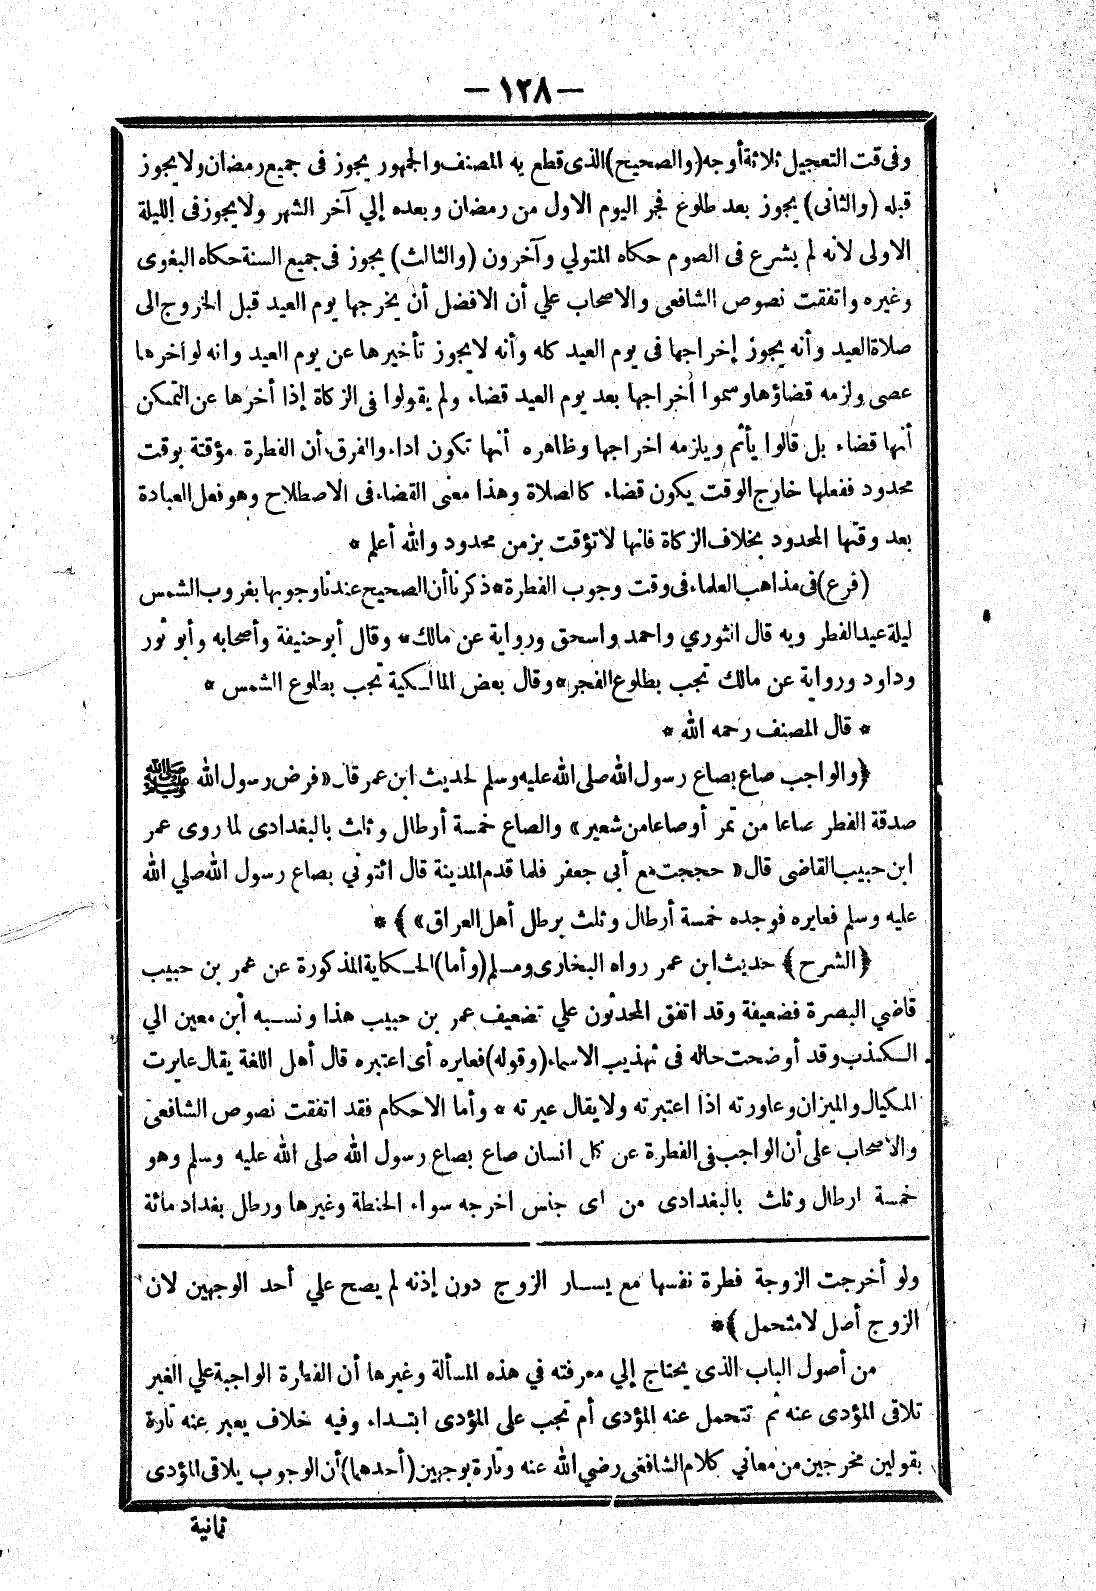 — ١٢٨ —
وفى قت التعجيل ثلاثة أوجه (والصحيح) الذى قطع به المصنف والجمهور يجوز فى جميع رمضان ولا يجوز
قبله (والثانى) يجوز بعد طلوع فجر اليوم الاول من رمضان وبعده إلي آخر الشهر ولا يجوز فى الليلة
الاولى لانه لم يشرع فى الصوم حكاه المتولي وآخرون (والثالث) يجوز فى جميع السنة حكاه البغوى
وغيره واتفقت نصوص الشافعى والاصحاب علي أن الافضل أن يخرجها يوم العيد قبل الخروج الى
صلاة العيد وأنه يجوز إخراجها فى يوم العيد كله وأنه لا يجوز تأخيرها عن يوم العيد وانه لو أخرها
عصى ولزمه قضاؤها وسموا أخراجها بعد يوم العيد قضاء ولم يقولوا فى الزكاة إذا أخرها عن التمكن
أنها قضاء بل قالوا يأثم ويلزمه اخراجها وظاهره أنها تكون اداء والفرق أن الفطرة مؤقتة بوقت
محدود ففعلها خارج الوقت يكون قضاء كالصلاة وهذا معنى القضاء فى الاصطلاح وهو فعل العبادة
بعد وقتها المحدود بخلاف الزكاة فانها لا تؤقت بزمن محدود والله أعلم *
(فرع) فى مذاهب العلماء فى وقت وجوب الفطرة * ذكرنا أن الصحيح عندنا وجوبها بغروب الشمس
ليلة عيد الفطر وبه قال الثوري واحمد واسحق ورواية عن مالك * وقال أبو حنيفة وأصحابه وأبو ثور
وداود ورواية عن مالك تجب بطلوع الفجر * وقال بعض المالكية تجب بطلوع الشمس *
* قال المصنف رحمه الله *
﴿والواجب صاع بصاع رسول الله صلى الله عليه وسلم لحديث ابن عمر قال «فرض رسول الله ﷺ
صدقة الفطر صاعا من تمر أو صاعا من شعير» والصاع خمسة أرطال وثلث بالبغدادى لما روى عمر
ابن حبيب القاضى قال « حججت مع أبى جعفر فلما قدم المدينة قال ائتوني بصاع رسول الله صلي الله
عليه وسلم فعايره فوجده خمسة أرطال وثلث برطل أهل العراق» ﴾ *
﴿الشرح﴾ حديث ابن عمر رواه البخارى ومسلم (وأما) الحكاية المذكورة عن عمر بن حبيب
قاضي البصرة فضعيفة وقد اتفق المحدثون علي تضعيف عمر بن حبيب هذا ونسبه أبن معين الي
الكذب وقد أوضحت حاله فى تهذيب الاسماء (وقوله) فعايره أى اعتبره قال أهل اللغة يقال عايرت
المكيال والميزان وعاورته اذا اعتبرته ولا يقال عيرته * وأما الاحكام فقد اتفقت نصوص الشافعى
والاصحاب على أن الواجب فى الفطرة عن كل انسان صاع بصاع رسول الله صلى الله عليه وسلم وهو
خمسة ارطال وثلث بالبغدادى من اى جنس اخرجه سواء الحنطة وغيرها ورطل بغداد مائة
ولو أخرجت الزوجة فطرة نفسها مع يسار الزوج دون إذنه لم يصح علي أحد الوجهين لان
الزوج أصل لا متحمل ﴾ *
من أصول الباب الذى يحتاج إلي معرفته في هذه المسألة وغيرها أن الفطرة الواجبة علي الغير
تلاقى المؤدى عنه ثم تتحمل عنه المؤدى أم تجب على المؤدى ابتداء وفيه خلاف يعبر عنه تارة
بقولين مخرجين من معاني كلام الشافعى رضي الله عنه وتارة بوجهين (أحدهما) أن الوجوب يلاقى المؤدى
ثمانية